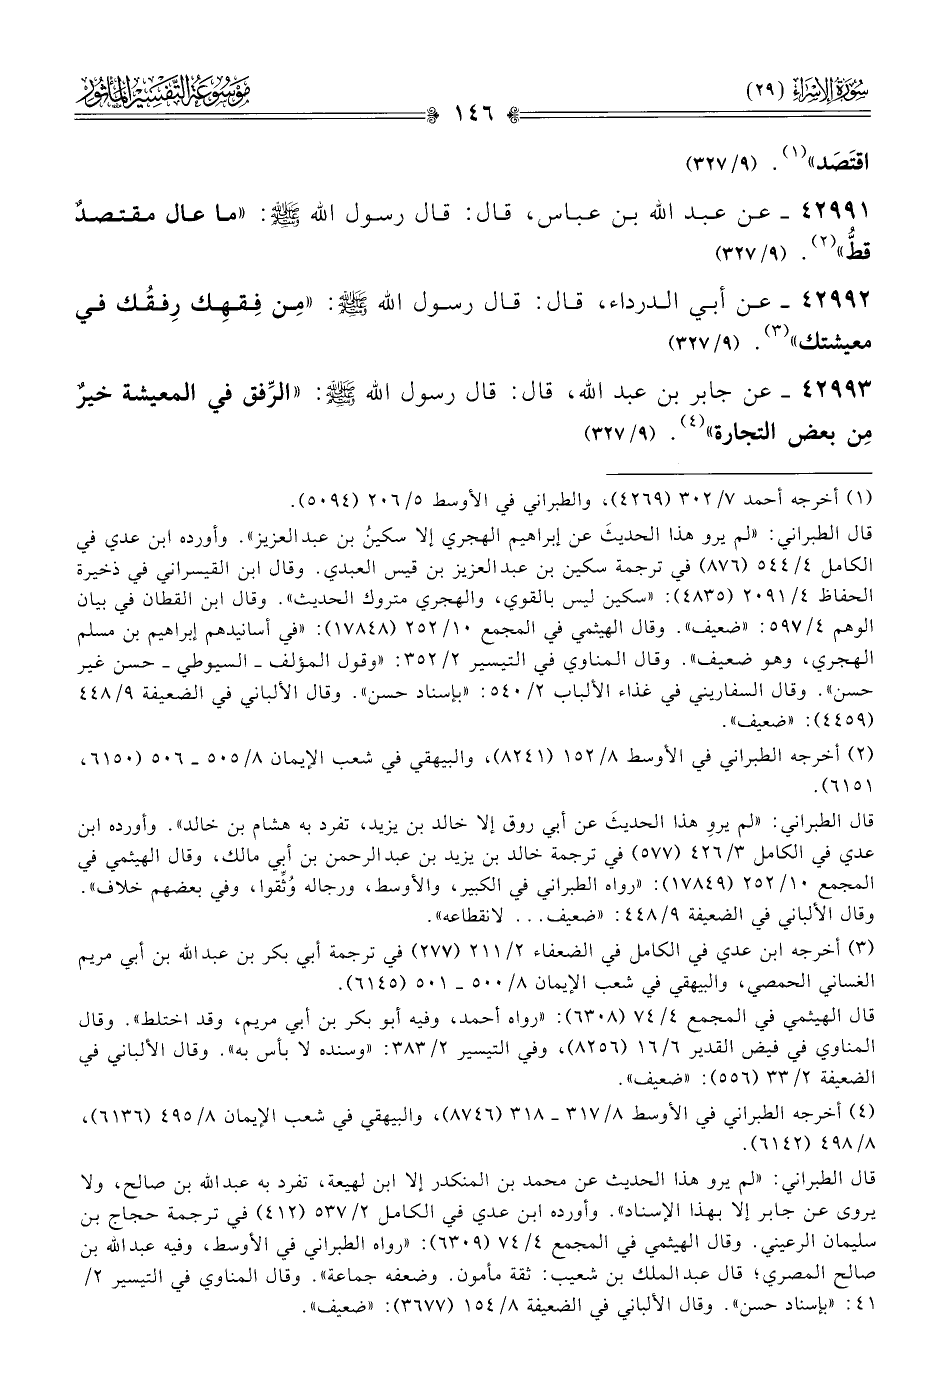 سُورَةُ الإِسْرَاءِ (٢٩)
مَوْسُوعَةُ التَّفْسِيرِ المَأْثُورِ
١٤٦
اقتَصَد»(١). (٣٢٧/٩)
٤٢٩٩١ ـ عن عبد الله بن عباس، قال: قال رسول الله ﷺ: «ما عال مقتصدٌ
قطُّ»(٢). (٣٢٧/٩)
٤٢٩٩٢ ـ عن أبي الدرداء، قال: قال رسول الله ﷺ: «مِن فِقهِك رِفقُك في
معيشتك»(٣). (٣٢٧/٩)
٤٢٩٩٣ ـ عن جابر بن عبد الله، قال: قال رسول الله ﷺ: «الرِّفق في المعيشة خيرٌ
مِن بعض التجارة»(٤). (٣٢٧/٩)
(١) أخرجه أحمد ٣٠٢/٧ (٤٢٦٩)، والطبراني في الأوسط ٢٠٦/٥ (٥٠٩٤).
قال الطبراني: «لم يرو هذا الحديثَ عن إبراهيم الهجري إلا سكينُ بن عبدالعزيز». وأورده ابن عدي في
الكامل ٥٤٤/٤ (٨٧٦) في ترجمة سكين بن عبدالعزيز بن قيس العبدي. وقال ابن القيسراني في ذخيرة
الحفاظ ٢٠٩١/٤ (٤٨٣٥): «سكين ليس بالقوي، والهجري متروك الحديث». وقال ابن القطان في بيان
الوهم ٥٩٧/٤: «ضعيف». وقال الهيثمي في المجمع ٢٥٢/١٠ (١٧٨٤٨): «في أسانيدهم إبراهيم بن مسلم
الهجري، وهو ضعيف». وقال المناوي في التيسير ٣٥٢/٢: «وقول المؤلف ـ السيوطي ـ حسن غير
حسن». وقال السفاريني في غذاء الألباب ٥٤٠/٢: «بإسناد حسن». وقال الألباني في الضعيفة ٤٤٨/٩
(٤٤٥٩): «ضعيف».
(٢) أخرجه الطبراني في الأوسط ١٥٢/٨ (٨٢٤١)، والبيهقي في شعب الإيمان ٥٠٥/٨ ـ ٥٠٦ (٦١٥٠،
٦١٥١).
قال الطبراني: «لم يروِ هذا الحديثَ عن أبي روق إلا خالد بن يزيد، تفرد به هشام بن خالد». وأورده ابن
عدي في الكامل ٤٢٦/٣ (٥٧٧) في ترجمة خالد بن يزيد بن عبدالرحمن بن أبي مالك، وقال الهيثمي في
المجمع ٢٥٢/١٠ (١٧٨٤٩): «رواه الطبراني في الكبير، والأوسط، ورجاله وُثِّقوا، وفي بعضهم خلاف».
وقال الألباني في الضعيفة ٤٤٨/٩: «ضعيف... لانقطاعه».
(٣) أخرجه ابن عدي في الكامل في الضعفاء ٢١١/٢ (٢٧٧) في ترجمة أبي بكر بن عبدالله بن أبي مريم
الغساني الحمصي، والبيهقي في شعب الإيمان ٥٠٠/٨ ـ ٥٠١ (٦١٤٥).
قال الهيثمي في المجمع ٧٤/٤ (٦٣٠٨): «رواه أحمد، وفيه أبو بكر بن أبي مريم، وقد اختلط». وقال
المناوي في فيض القدير ١٦/٦ (٨٢٥٦)، وفي التيسير ٣٨٣/٢: «وسنده لا بأس به». وقال الألباني في
الضعيفة ٣٣/٢ (٥٥٦): «ضعيف».
(٤) أخرجه الطبراني في الأوسط ٣١٧/٨ ـ ٣١٨ (٨٧٤٦)، والبيهقي في شعب الإيمان ٤٩٥/٨ (٦١٣٦)،
٤٩٨/٨ (٦١٤٢).
قال الطبراني: «لم يرو هذا الحديث عن محمد بن المنكدر إلا ابن لهيعة، تفرد به عبدالله بن صالح، ولا
يروى عن جابر إلا بهذا الإسناد». وأورده ابن عدي في الكامل ٥٣٧/٢ (٤١٢) في ترجمة حجاج بن
سليمان الرعيني. وقال الهيثمي في المجمع ٧٤/٤ (٦٣٠٩): «رواه الطبراني في الأوسط، وفيه عبدالله بن
صالح المصري؛ قال عبدالملك بن شعيب: ثقة مأمون. وضعفه جماعة». وقال المناوي في التيسير ٢/
٤١: «بإسناد حسن». وقال الألباني في الضعيفة ١٥٤/٨ (٣٦٧٧): «ضعيف».